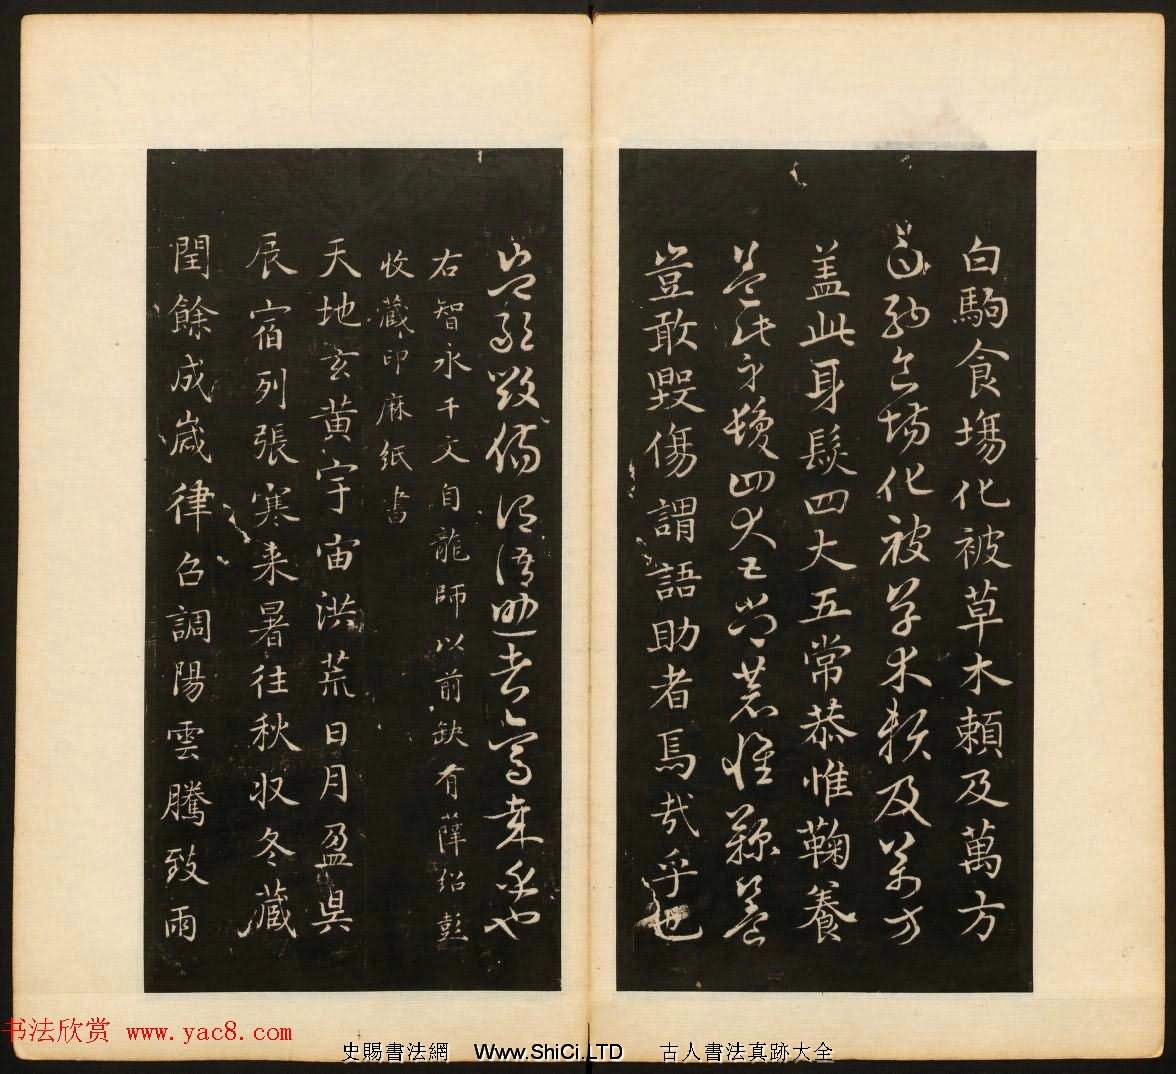 白駒食場化被草木賴及萬方
白駒食場化被草木賴及萬方
盖此身髮四大五常恭惟鞠養
盖此身髮四大五常恭惟鞠養
豈敢毀傷謂語助者焉哉乎也
豈敢毀傷謂語助者焉哉乎也
右智永千文自龍師以前缺有薛紹彭
收藏印麻紙書
天地玄黄宇宙洪荒日月盈昃
辰宿列張寒来暑往秋収冬藏
閏餘成歲律召調陽雲騰致雨
书法欣赏 www.yac8.com
史賜書法網 Www.ShiCi.LTD 古人書法真跡大全